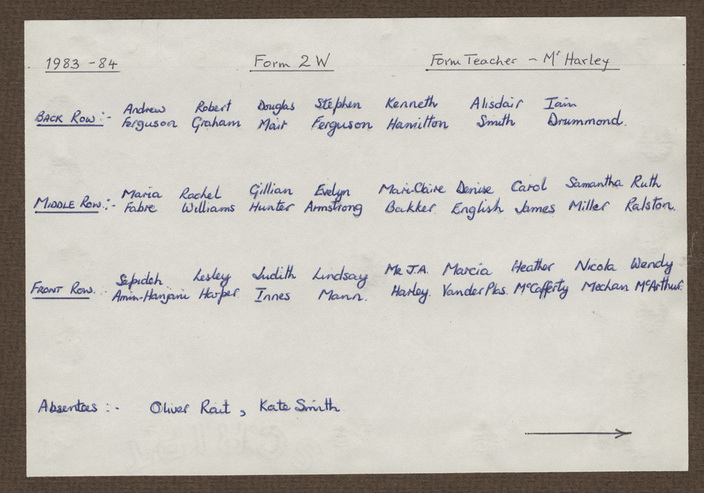 1983-84 Form 2W Form Teacher - Mr Harley
Andrew Robert Douglas Stephen Kenneth Alisdair Iain
BACK ROW:- Ferguson Graham Mair Ferguson Hamilton Smith Drummond.
Maria Rachel Gillian Evelyn Mari-Claire Denise Carol Samantha Ruth
MIDDLE ROW:- Fabre Williams Hunter Armstrong Bakker English James Miller Ralston.
Sepideh Lesley Judith Lindsay Mr J.A. Marcia Heather Nicola Wendy
FRONT ROW. Amin-Hanjani Harper Innes Mann. Harley. Vander Plas. McCafferty Mechan McArthur.
Absentees:- Oliver Rait, Kate Smith